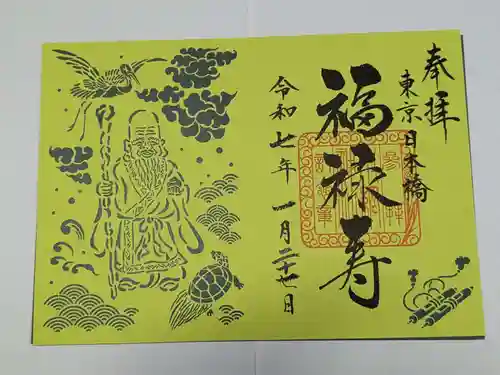 奉拝
東京日本橋
福禄寿
令和七年一月二十七日